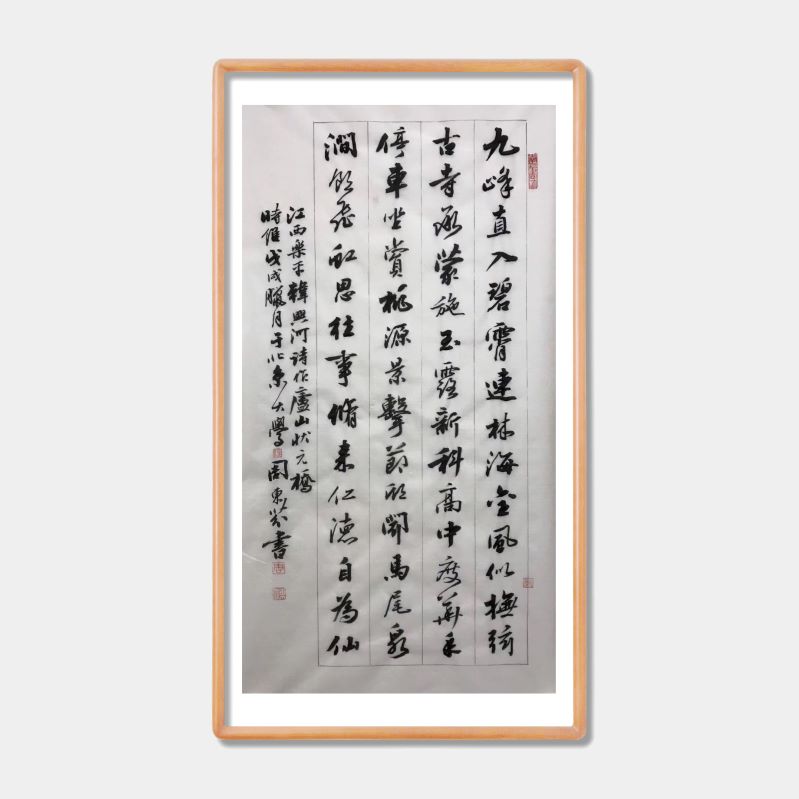 九峰直入碧霄連林海金風似撫弦
古寺承蒙施玉露新科高中度華年
停車坐賞桃源景擊節聆聞馬尾泉
澗飲飛虹思往事脩来仁德自為仙
江西樂平韓興河詩作廬山狀元橋
時維戊戌臘月于北京大學周東芬書